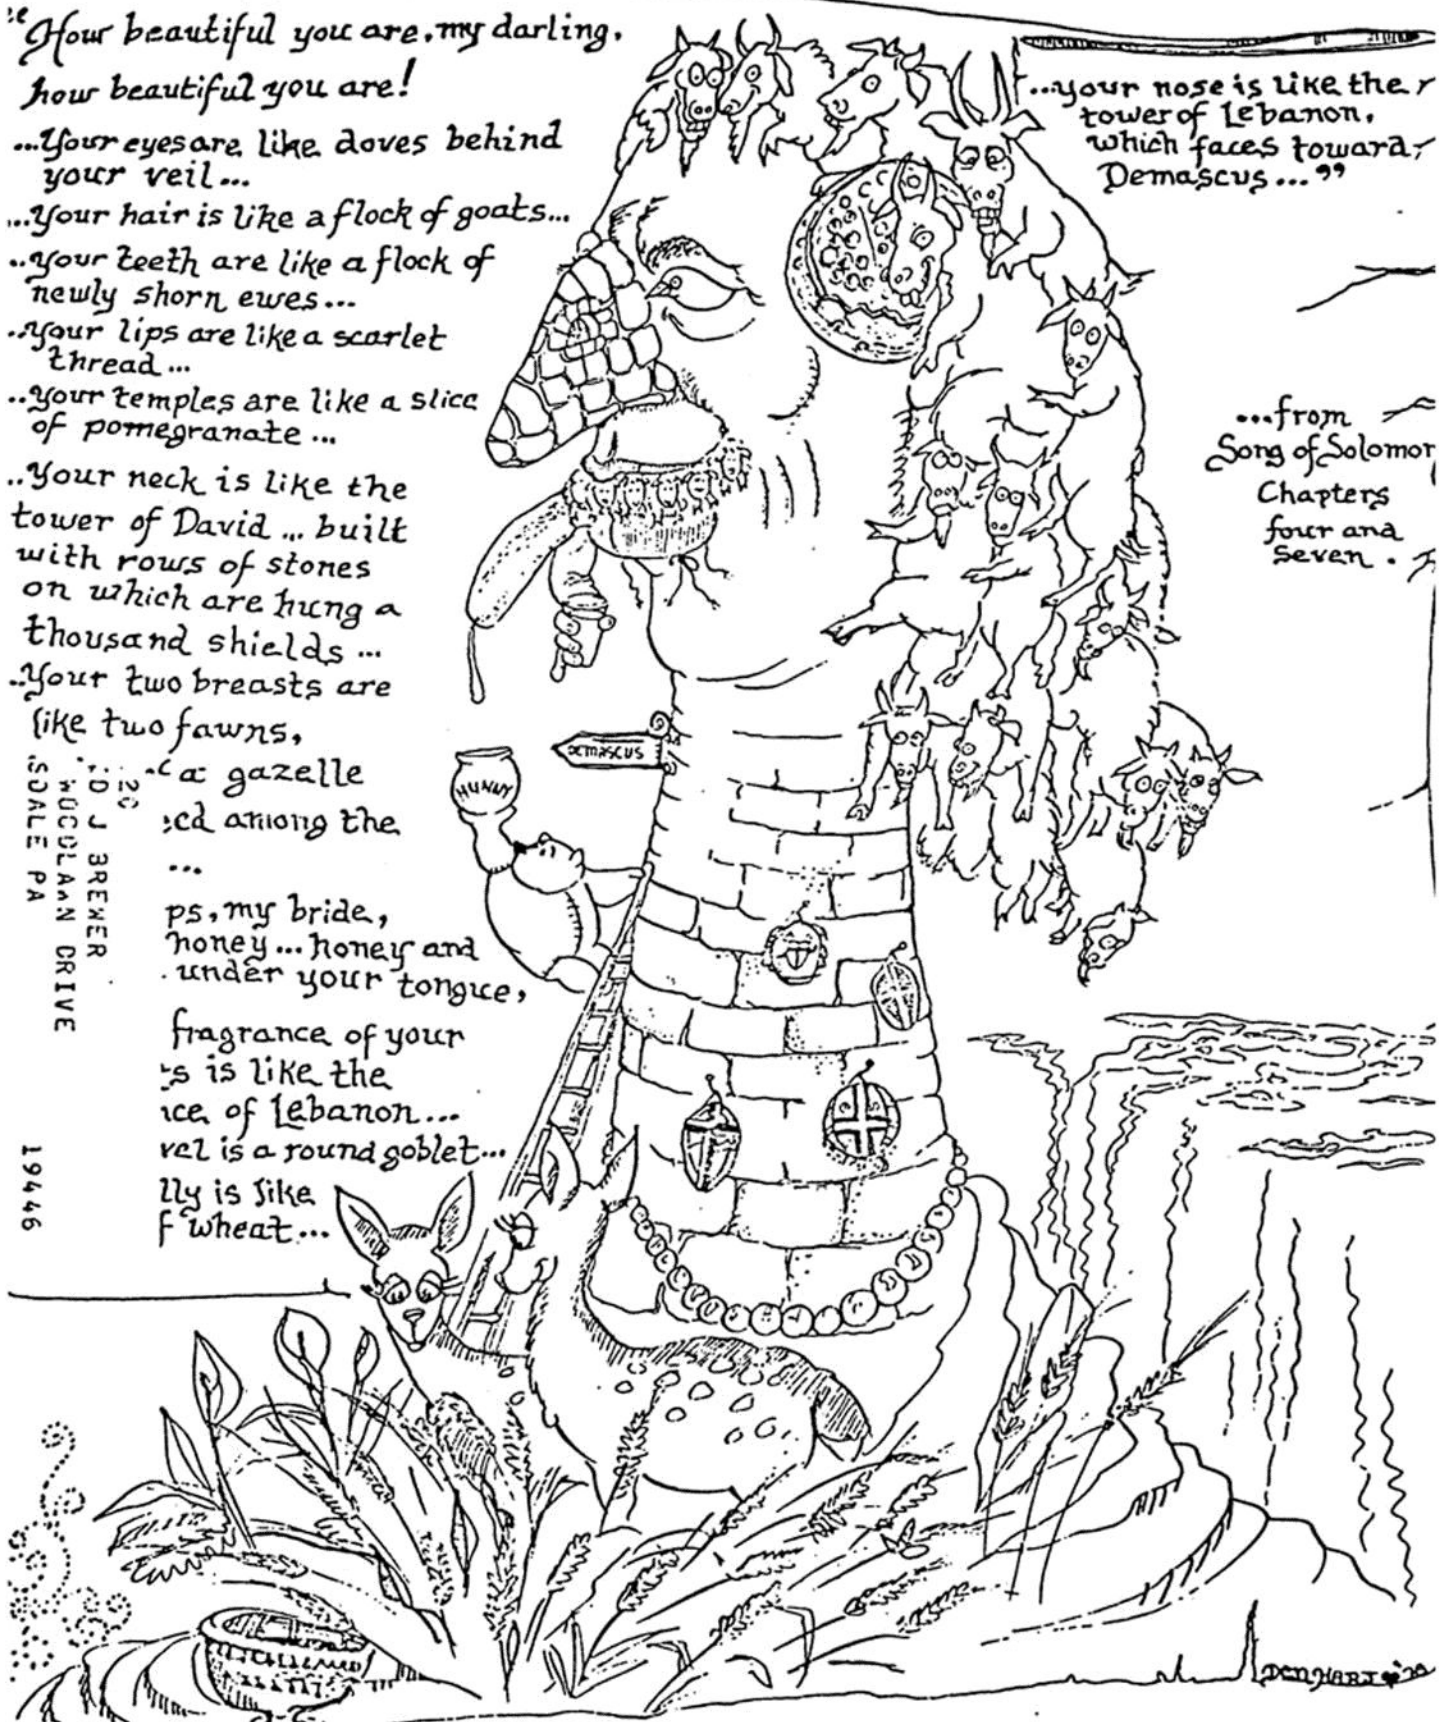 "How beautiful you are, my darling,
how beautiful you are!
...Your eyes are like doves behind
your veil...
...Your hair is like a flock of goats...
..your teeth are like a flock of
newly shorn ewes...
..your lips are like a scarlet
thread...
..your temples are like a slice
of pomegranate...
..Your neck is like the
tower of David ... built
with rows of stones
on which are hung a
thousand shields ...
..Your two breasts are
like two fawns,
a gazelle
among the
...
ps, my bride,
honey... honey and
under your tongue,
fragrance of your
s is like the
of Lebanon...
is a round goblet...
lly is like
f wheat...
20
D J BREWER
WOODLAWN DRIVE
SDALE PA
19446
...your nose is like the
tower of Lebanon,
which faces toward
Demascus..."
...from
Song of Solomon
Chapters
four and
Seven.
DEMASCUS
HUNNY
DEN HART